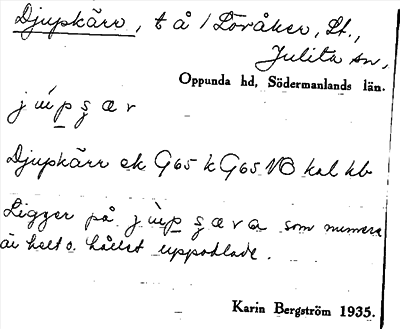 Djupkärr, t å /Loråker, Lt.,
Julita sn,
Oppunda hd, Södermanlands län.
Djupkärr ek G65 k G65 NO kal kb
Ligger på som numera
är helt o. hållet uppodlade.
Karin Bergström 1935.